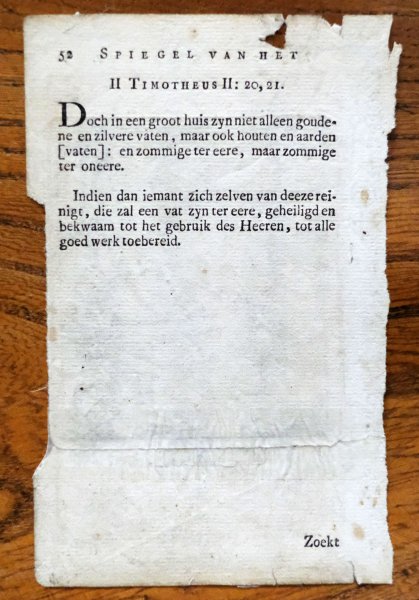 52 SPIEGEL VAN HET
II TIMOTHEUS II: 20, 21.
Doch in een groot huis zyn niet alleen goude-
ne en zilvere vaten, maar ook houten en aarden
[vaten]: en zommige ter eere, maar zommige
ter oneere.
Indien dan iemant zich zelven van deeze rei-
nigt, die zal een vat zyn ter eere, geheiligd en
bekwaam tot het gebruik des Heeren, tot alle
goed werk toebereid.
Zoekt